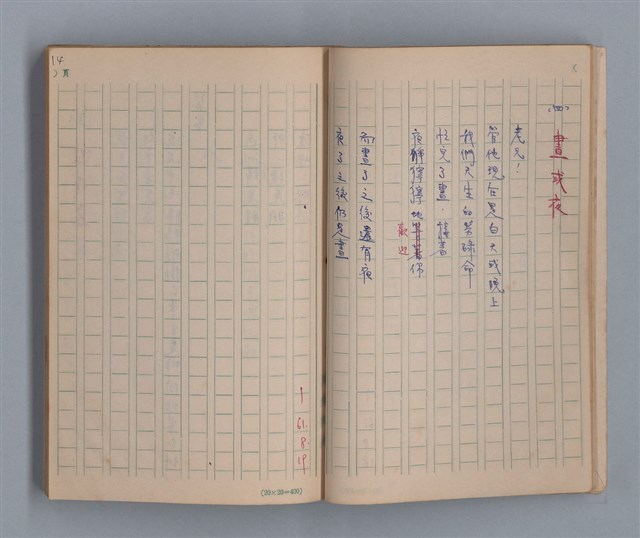 晝或夜
老兄！
管他現在是白天或晚上
我們天生的勞碌命
忙完了晝，接著
夜靜獰獰地等著你
歡迎
而晝了之後還有夜
夜了之後仍是晝
61.8.19
14
頁
(20×20=400)